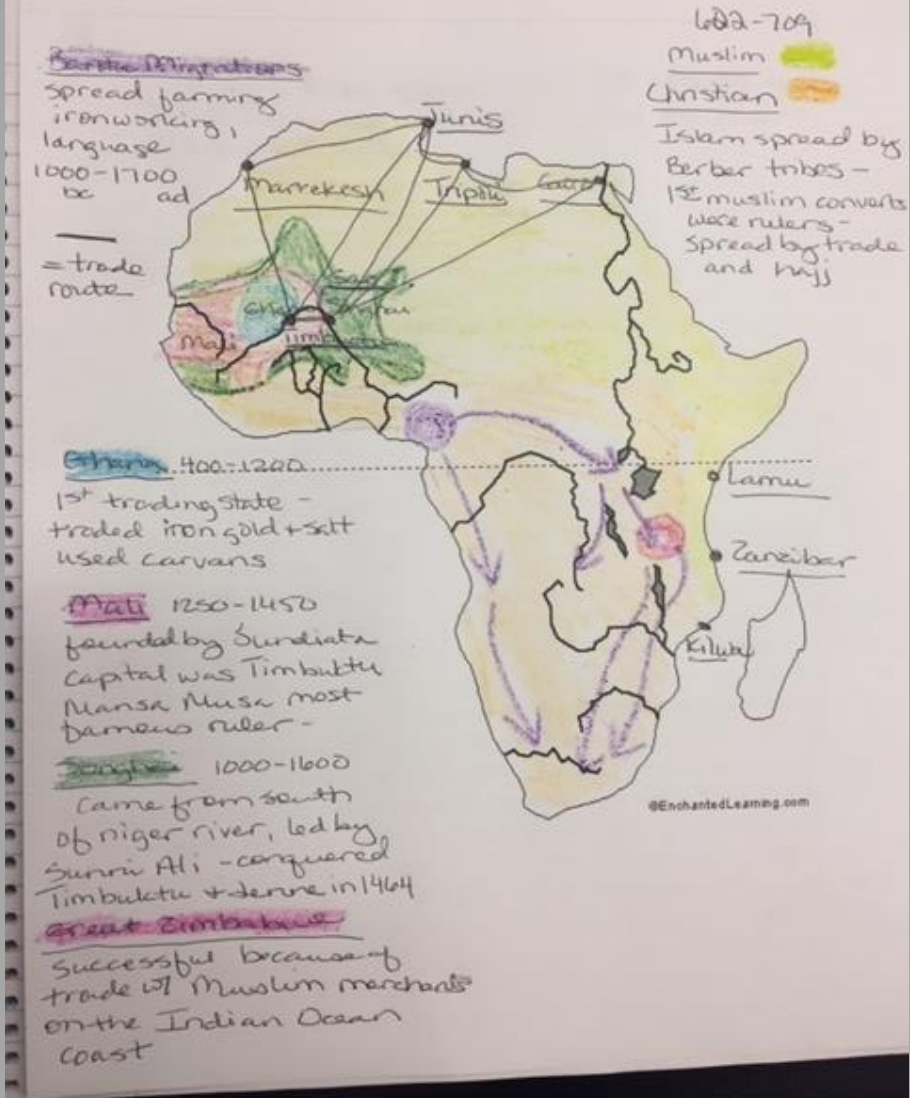 Bantu Migrations
spread farming
ironworking,
language
1000-1700
bc ad
= trade
route
622-709
Muslim
Christian
Islam spread by
Berber tribes -
1st muslim converts
were rulers -
spread by trade
and hajj
Tunis
Marrekesh
Tripoli
Cairo
Gao
Ghana
Mali
Timbuktu
Lamu
Zanzibar
Kilwa
©EnchantedLearning.com
Ghana 400-1200
1st trading state -
traded iron gold + salt
used carvans
Mali 1250-1450
founded by Sundiata
capital was Timbuktu
Mansa Musa most
famous ruler -
Songhai 1000-1600
came from south
of niger river, led by
Sunni Ali - conquered
Timbuktu + Jenne in 1464
Great Zimbabwe
successful because of
trade w/ Muslim merchants
on the Indian Ocean
coast